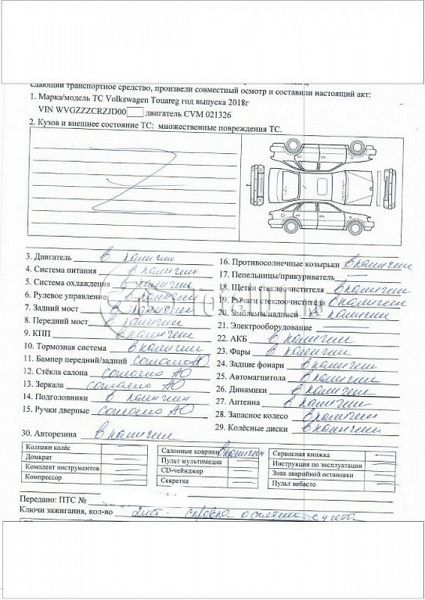 сдающий транспортное средство, произвели совместный осмотр и составили настоящий акт:
1. Марка/модель ТС Volkswagen Touareg год выпуска 2018г
VIN WVGZZZCRZJD00 двигатель CVM 021326
2. Кузов и внешнее состояние ТС: множественные повреждения ТС.
3. Двигатель в наличии
4. Система питания в наличии
5. Система охлаждения в наличии
6. Рулевое управление в наличии
7. Задний мост в наличии
8. Передний мост в наличии
9. КПП в наличии
10. Тормозная система в наличии
11. Бампер передний/задний согласно АО
12. Стёкла салона согласно АО
13. Зеркала согласно АО
14. Подголовники в наличии
15. Ручки дверные согласно АО
16. Противосолнечные козырьки в наличии
17. Пепельницы/прикуриватель —
18. Щетки стеклоочистителя в наличии
19. Рычаги стеклоочистителя в наличии
20. Эмблемы/надписи в наличии
21. Электрооборудование
22. АКБ в наличии
23. Фары в наличии
24. Задние фонари в наличии
25. Автомагнитола в наличии
26. Динамики в наличии
27. Антенна в наличии
28. Запасное колесо в наличии
29. Колёсные диски в наличии
30. Авторезина в наличии
Колпаки колёс
Домкрат
Комплект инструментов
Компрессор
Салонные коврики в наличии
Пульт мультимедиа
CD-чейнджер
Секретка
Сервисная книжка
Инструкция по эксплуатации
Знак аварийной остановки
Пульт вебасто
Передано: ПТС №
Ключи зажигания, кол-во справка о снятии с учета